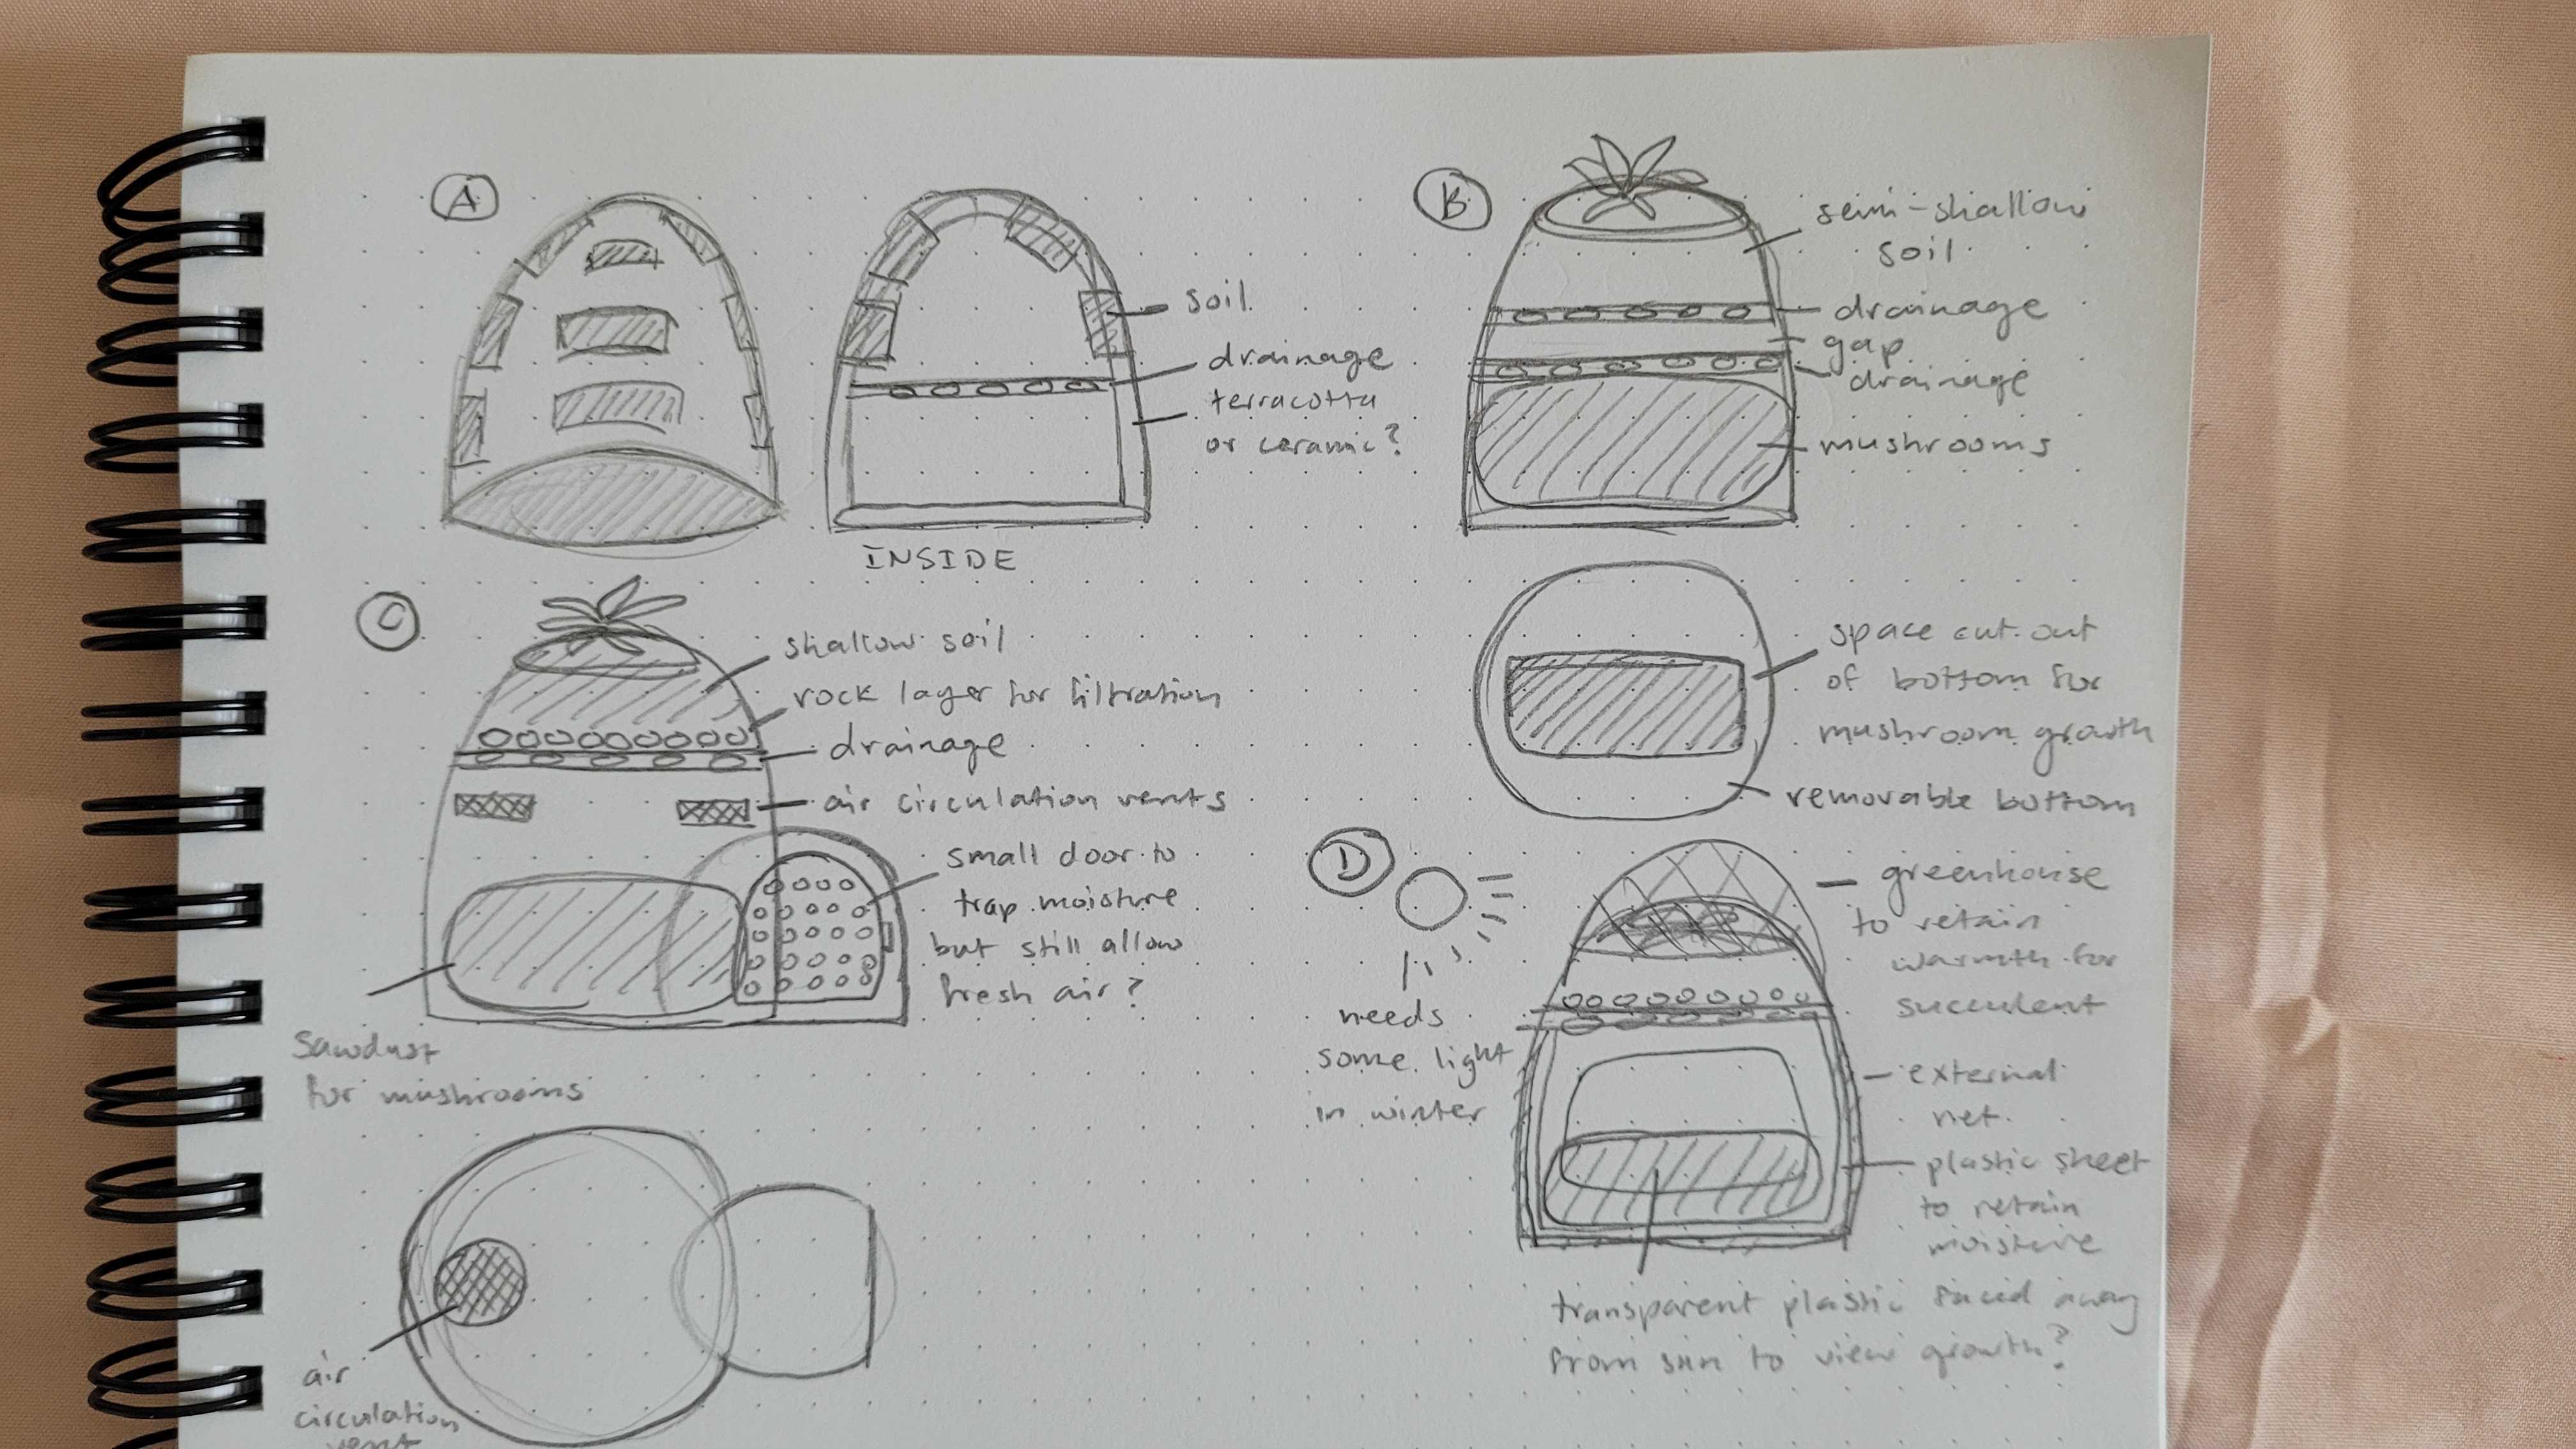 A
soil
drainage
terracotta
or ceramic?
INSIDE
B
semi-shallow
soil
drainage
gap
drainage
mushrooms
space cut out
of bottom for
mushroom growth
removable bottom
C
shallow soil
rock layer for filtration
drainage
air circulation vents
small door to
trap moisture
but still allow
fresh air?
sawdust
for mushrooms
air
circulation
vent
D
needs
some light
in winter
greenhouse
to retain
warmth for
succulent
external
net
plastic sheet
to retain
moisture
transparent plastic faced away
from sun to view growth?